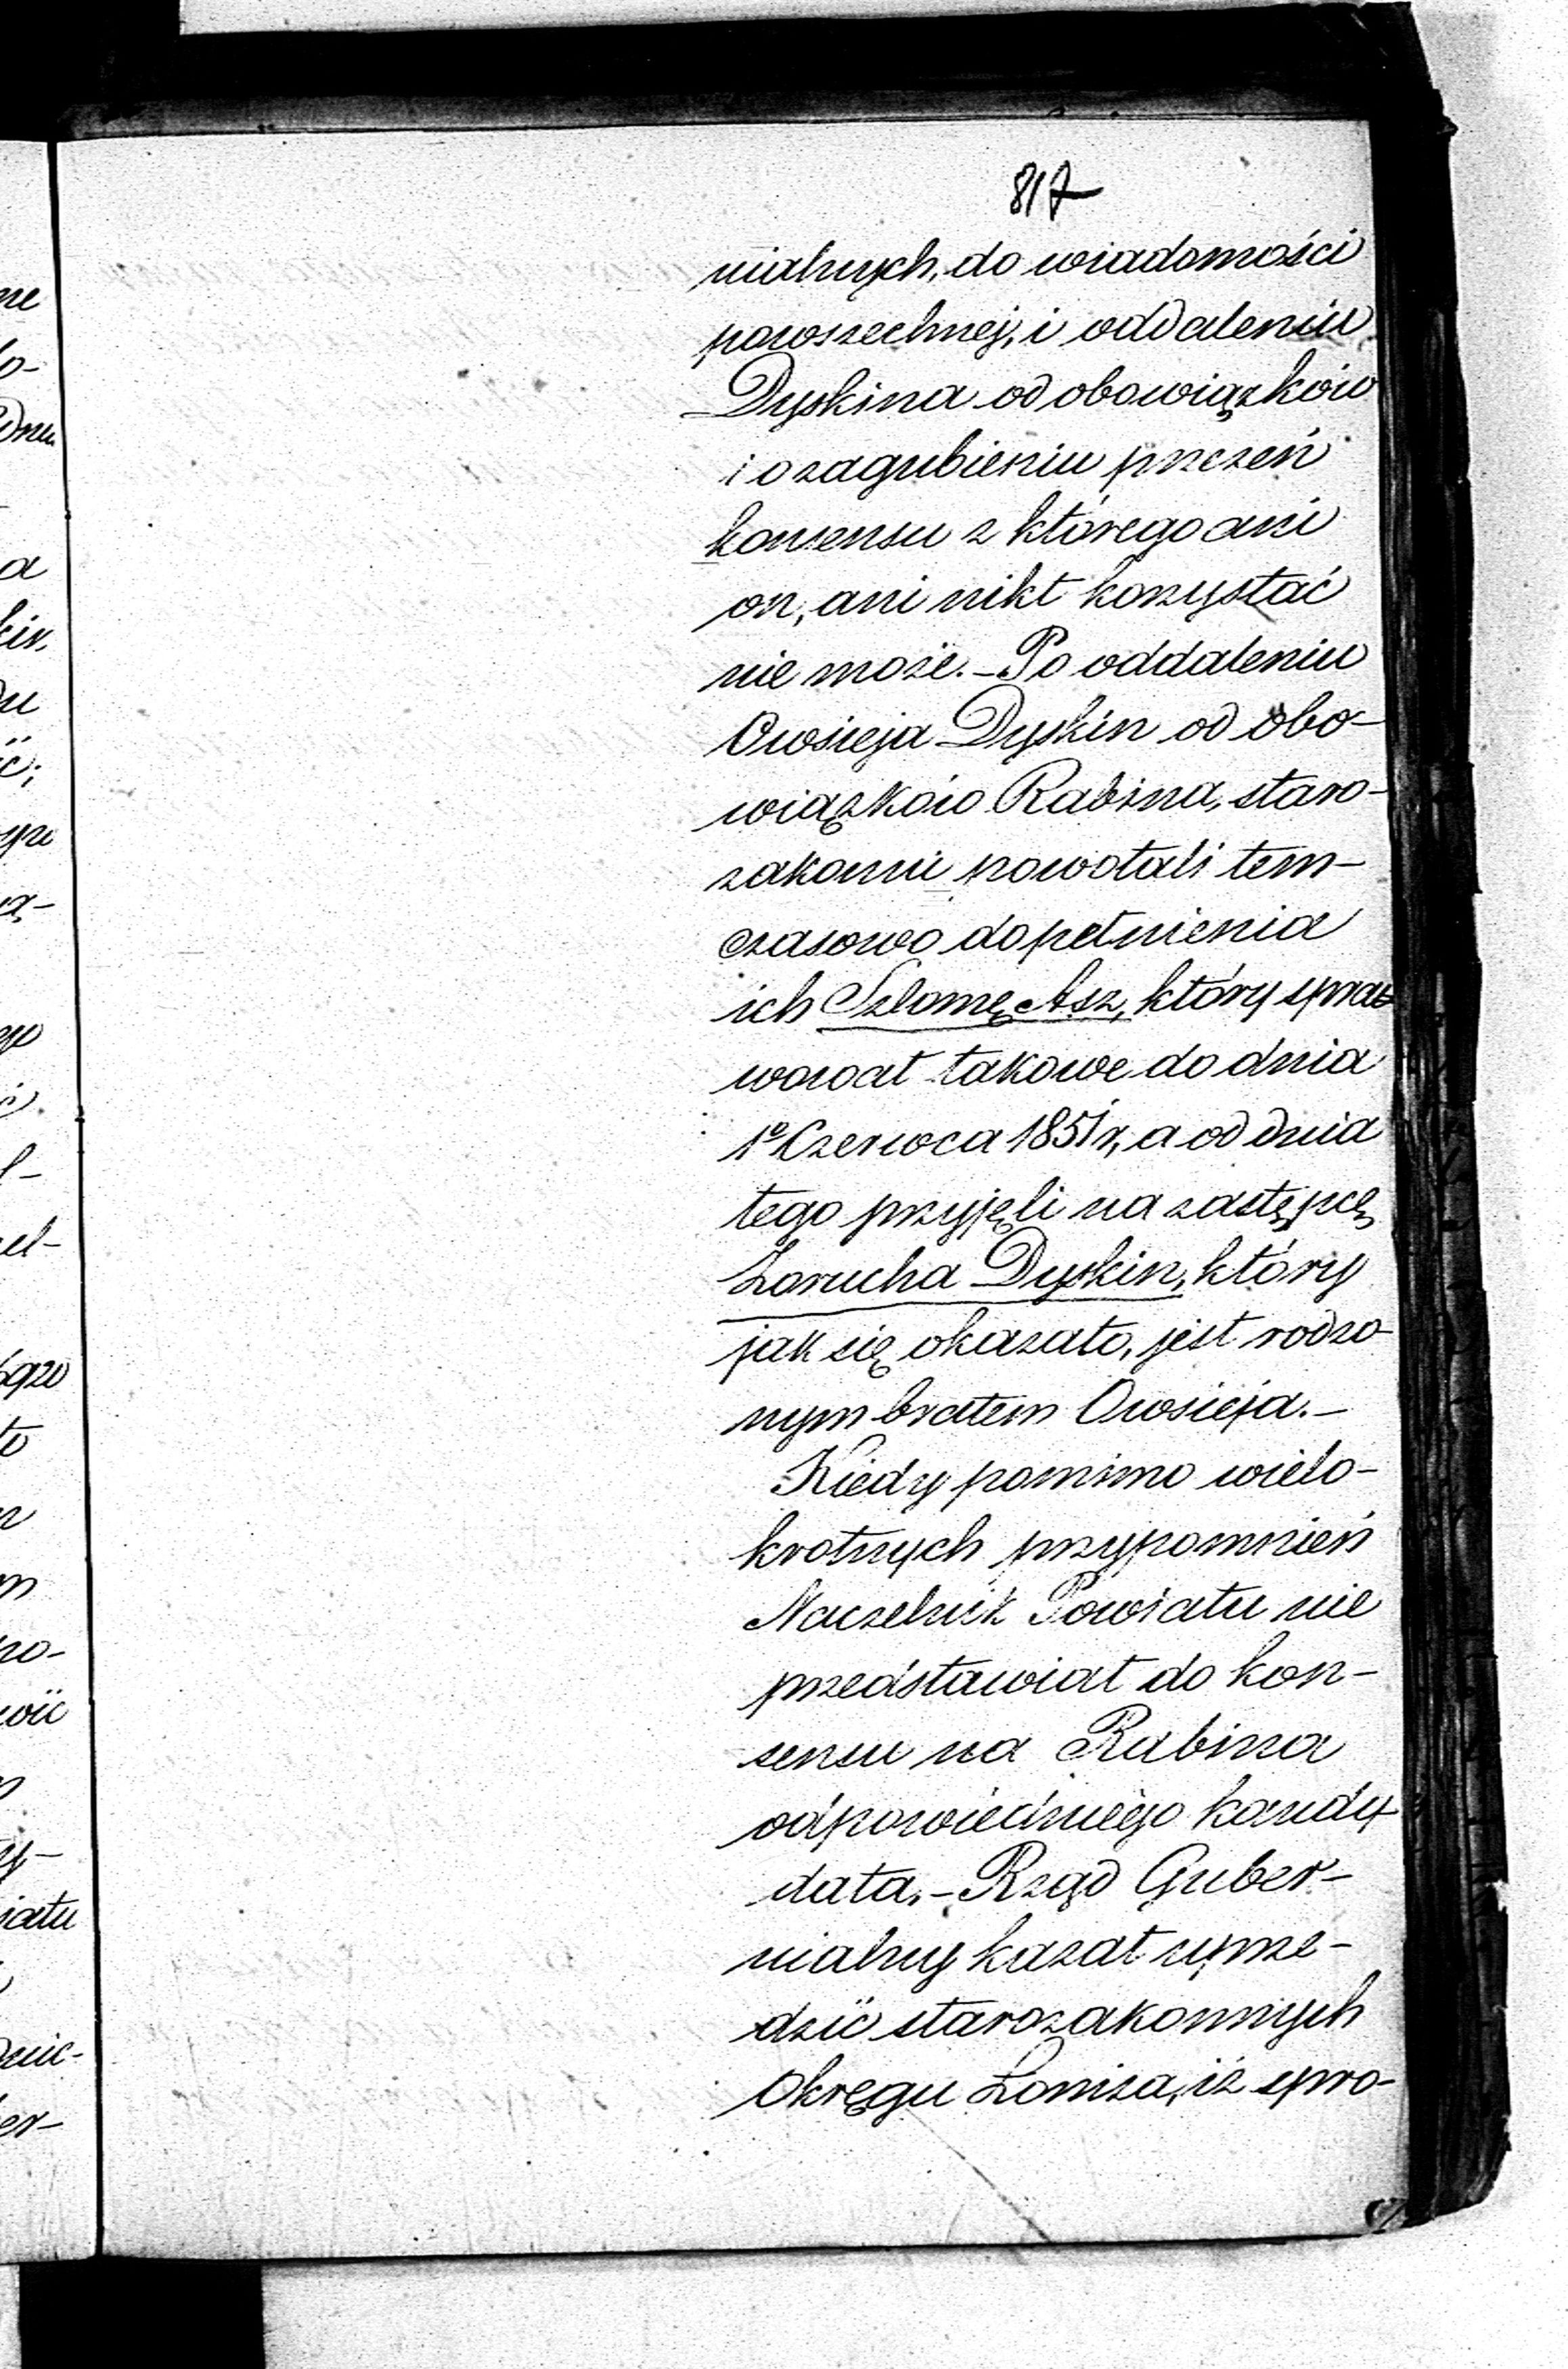 817
nialnych, do wiadomości
powszechnej, i oddaleniu
Dyskina od obowiązków
i o zagubieniu przezeń
konsensu z którego ani
on, ani nikt korzystać
nie może. – Po oddaleniu
Owsieja Dyskin od obo-
wiązków Rabina, staro-
zakonni powołali tem-
czasowo do pełnienia
ich Szlomę Asz, który spra-
wował takowe do dnia
1o Czerwca 1851 r, a od dnia
tego przyjęli na zastępcę
Zorucha Dyskin, który
jak się okazało, jest rodzo-
nym bratem Owsieja. –
Kiedy pomimo wielo-
krotnych przypomnień
Naczelnik Powiatu nie
przedstawiał do kon-
sensu na Rabina
odpowiedniego kandy-
data, – Rząd Guber-
nialny kazał uprze-
dzić starozakonnych
Okręgu Łomża, iż spro-
ne
o-
a
kin,
du
ść;
ą-
l-
el-
to
m
no-
wić
iatu
er-